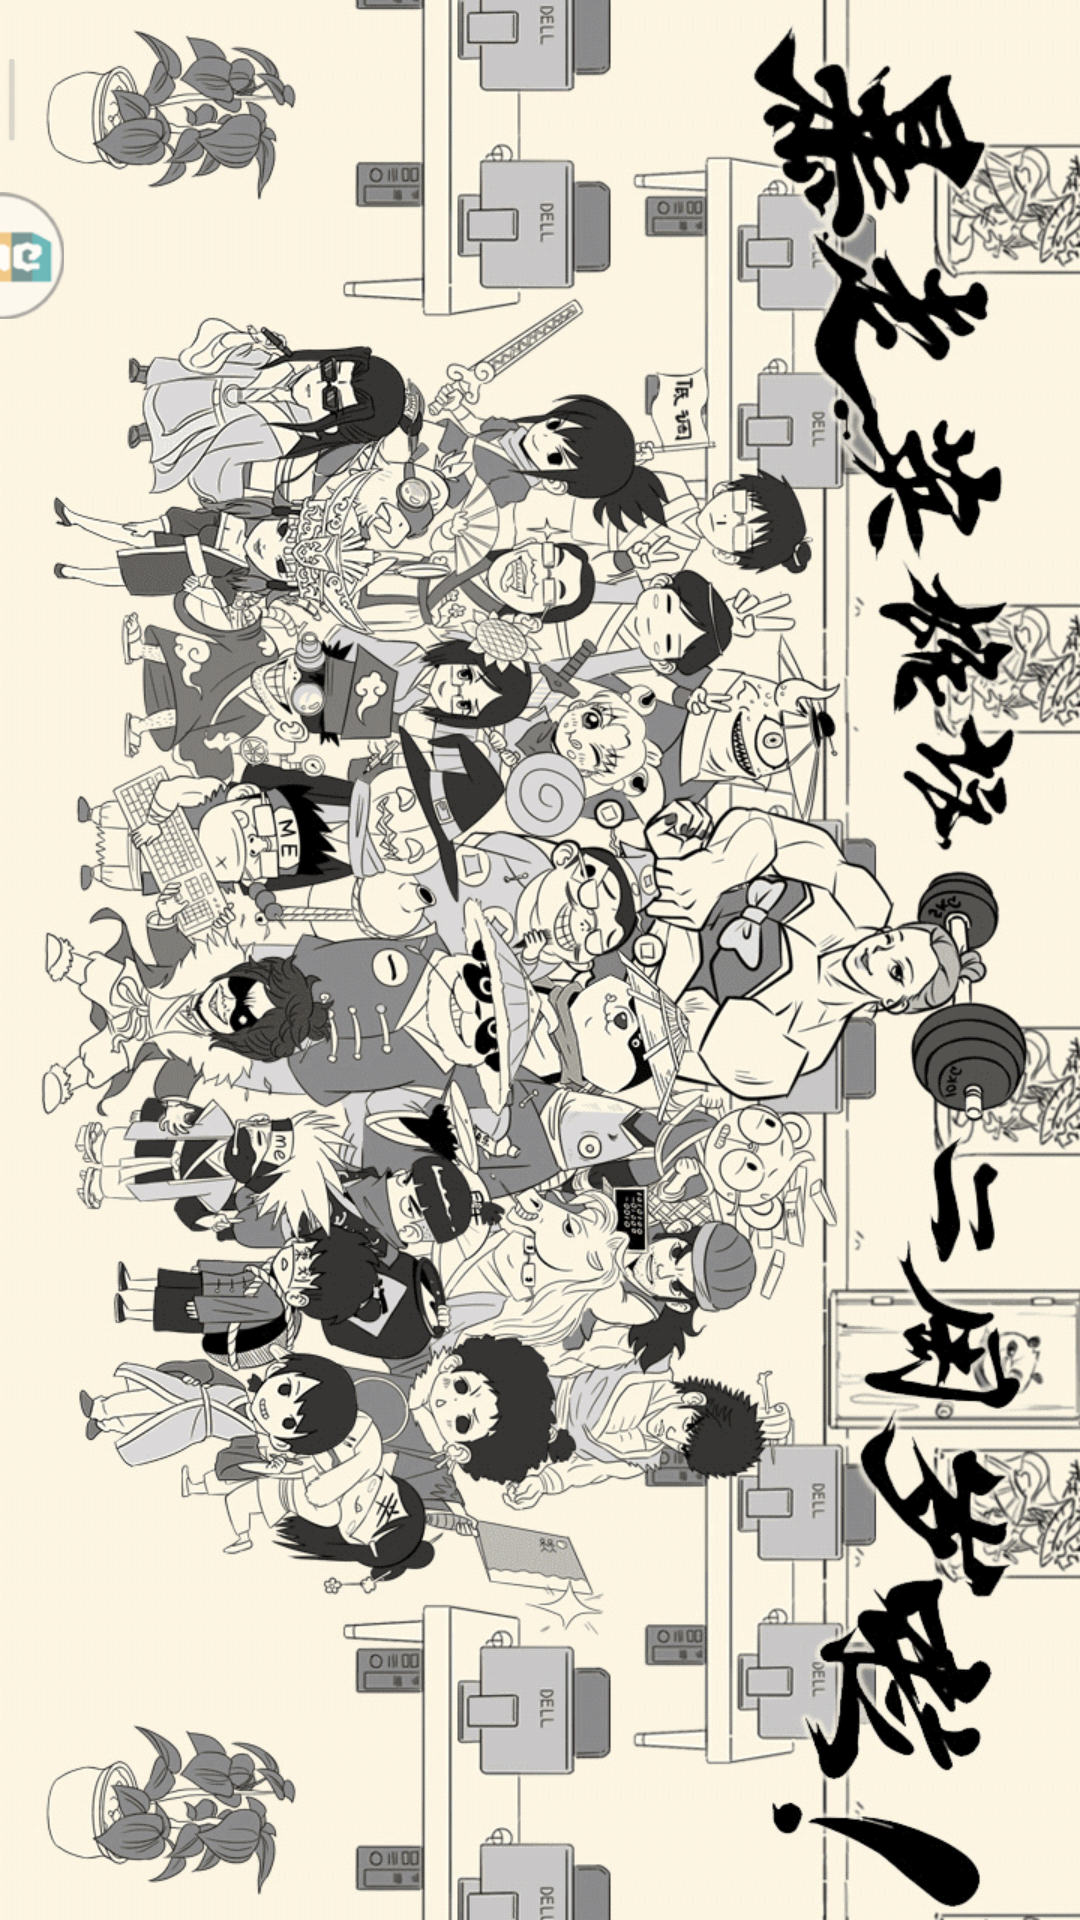 暴走英雄坛二周年啦！
10KG
DELL
DELL
DELL
低调
DELL
DELL
DELL
DELL
ME
me